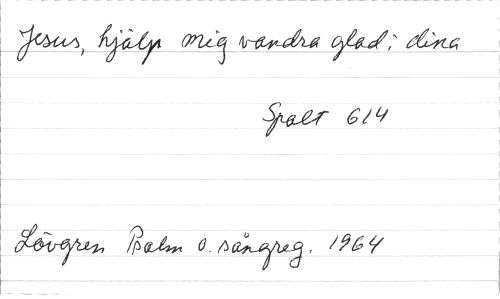 Jesus, hjälp mig vandra glad i dina
Spalt 614
Lövgren Psalm o. sångreg. 1964